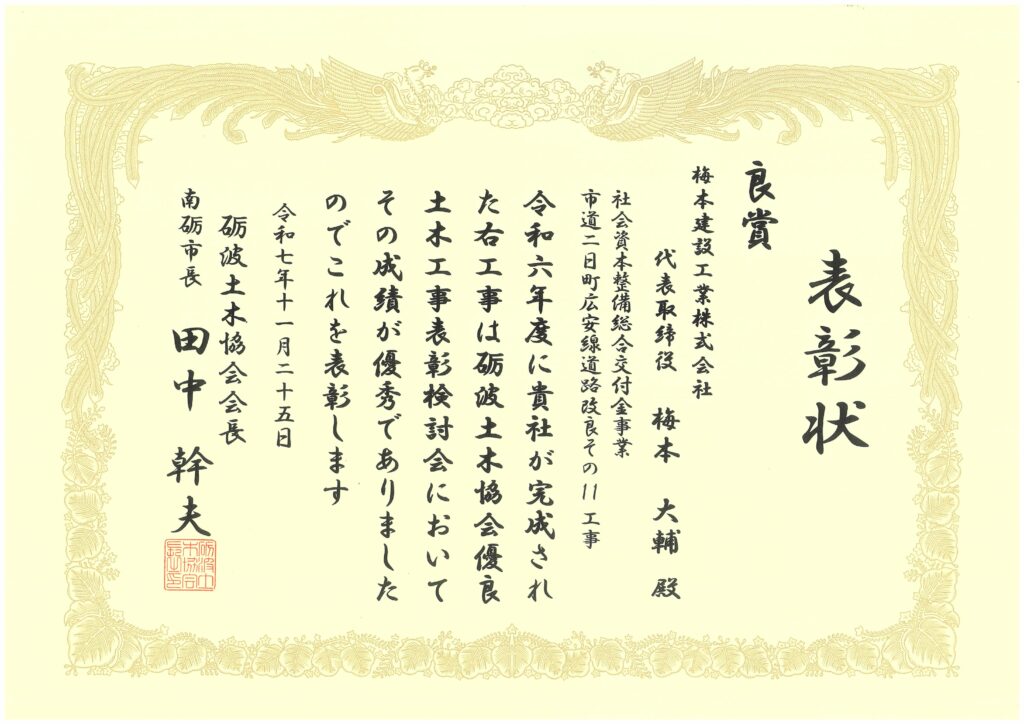 表彰状
良賞
梅本建設工業株式会社
代表取締役 梅本 大輔 殿
社会資本整備総合交付金事業
市道二日町広安線道路改良その11工事
令和六年度に貴社が完成され
た右工事は砺波土木協会優良
土木工事表彰検討会において
その成績が優秀でありました
のでこれを表彰します
令和七年十一月二十五日
砺波土木協会会長
南砺市長 田中 幹夫
砺波土
木協会
長之印